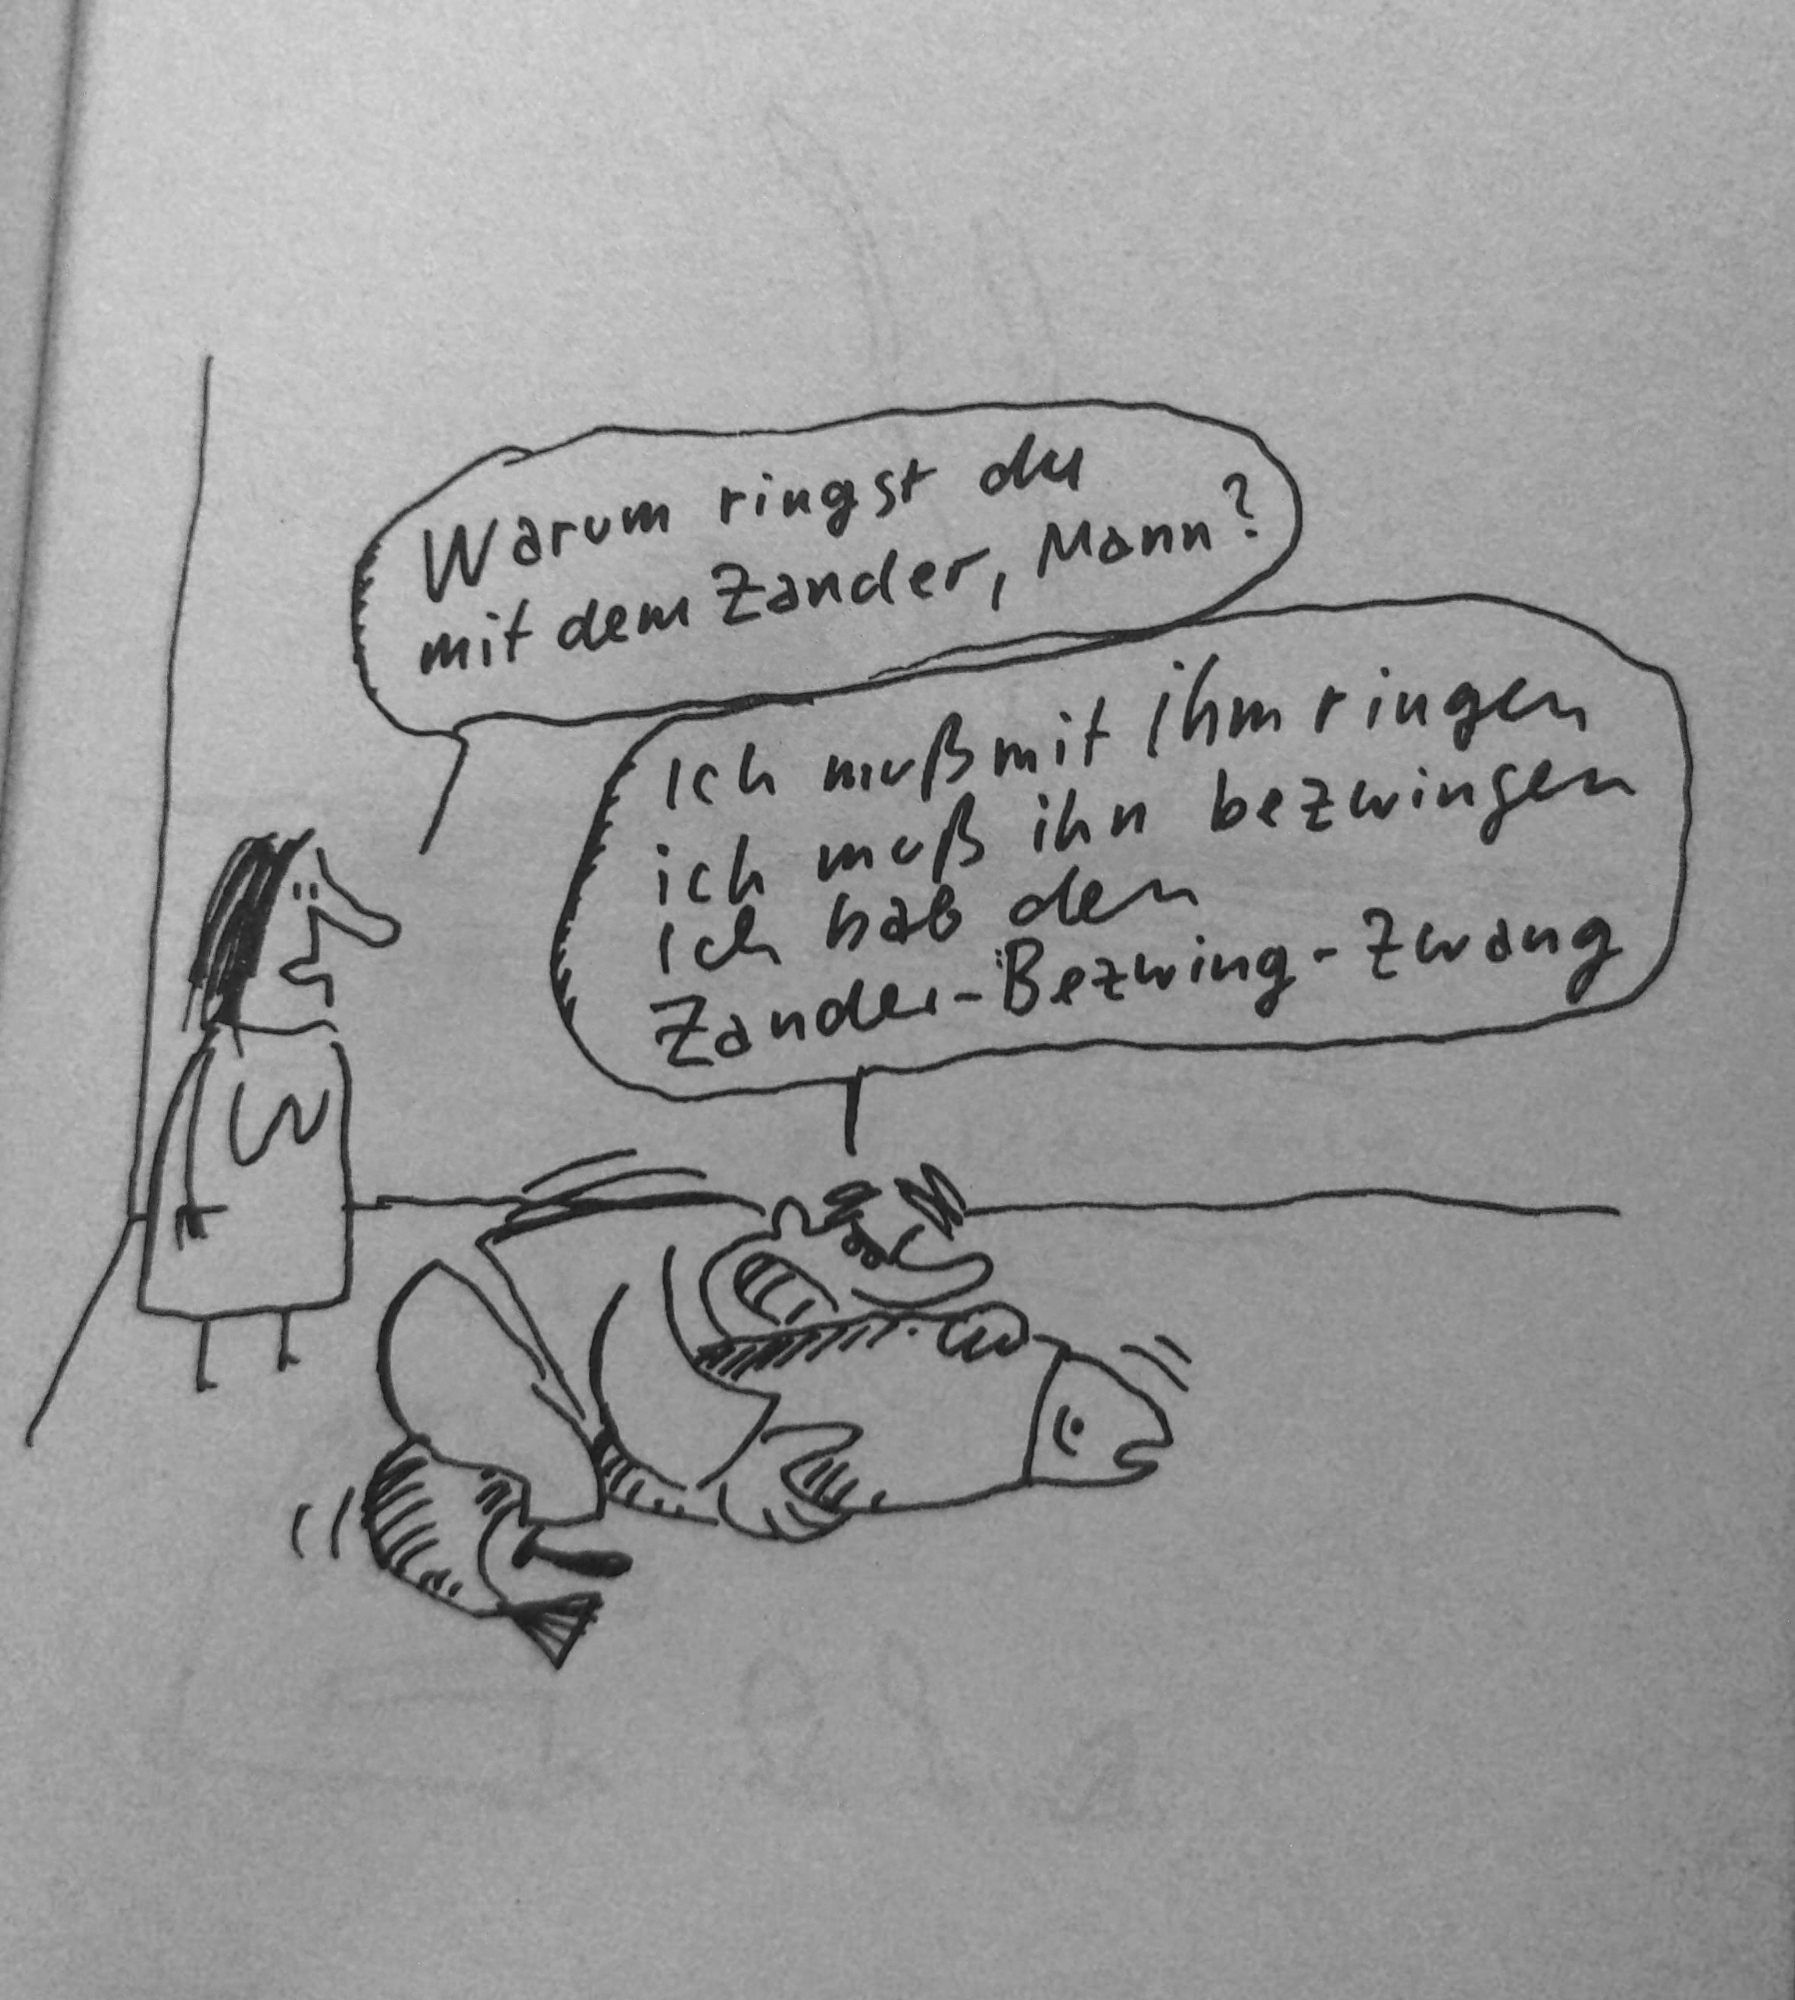 Warum ringst du
mit dem Zander, Mann?
Ich muß mit ihm ringen
ich muß ihn bezwingen
Ich hab den
Zander-Bezwing-Zwang